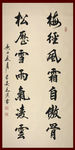 梅經風霜自傲骨
松歷雪雨氣凌雲